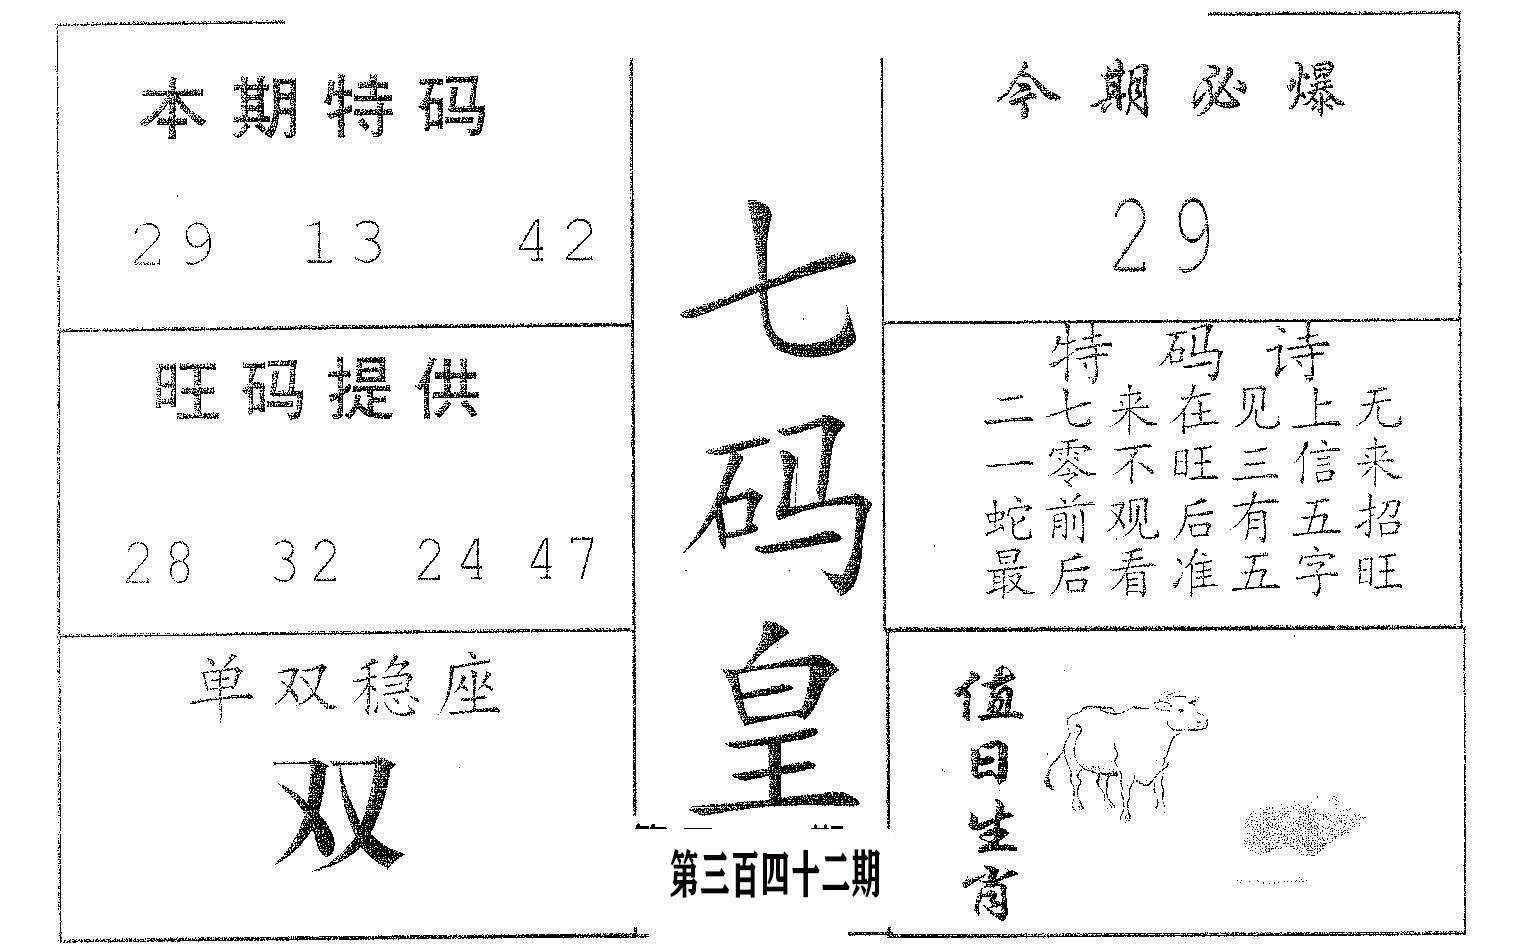 本期特码
29 13 42
旺码提供
28 32 24 47
单双稳座
双
七码皇
第三百四十二期
今期必爆
29
特码诗
二七来在见上无
一零不旺三信来
蛇前观后有五招
最后看准五字旺
值日生肖